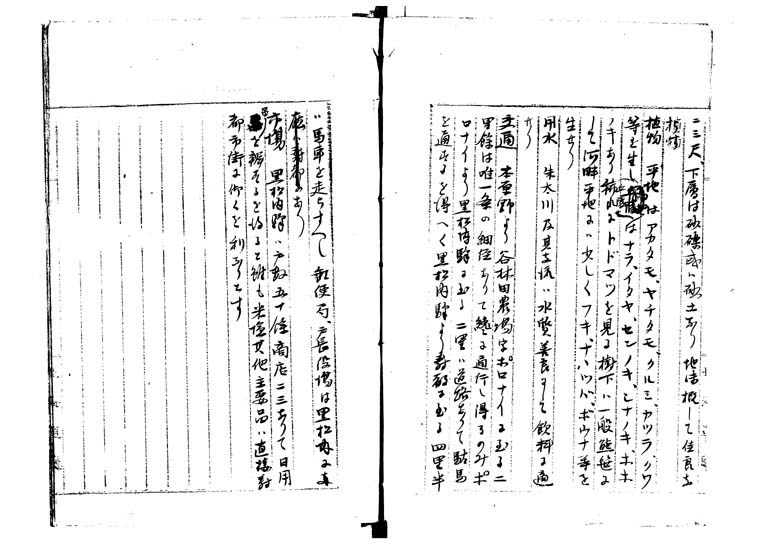 二三尺、下層ハ砂礫或ハ砂土ナリ地味概シテ佳良
植物
植物 平地ハアカダモ、ヤチダモ、クルミ、カツラ、クワ
等ヲ生シ ハナラ、イタヤ、センノキ、シナノキ、ホホ
ノキアリ稀ニトドマツヲ見ル樹下ハ一般熊笹ニ
シテ河畔平地ニハ少シクフキ、ナハツバ、ボウナ等ヲ
生セリ
用水 朱太川及其支流ハ水質善良ニシテ飲料ニ適
セリ
交通 本原野ヨリ谷林田農場字ポロナイニ至ル二
里餘ハ唯一条ノ細径アリテ纔ニ通行シ得ルノミポ
ロナイヨリ黒松内駅ニ至ル二里ハ道路アリテ駄馬
ヲ通スルヲ得ヘク黒松内駅ヨリ寿都ニ至ル四里半
ハ馬車ヲ走ラスヘシ郵便局、戸長役場ハ黒松内ニ
ハ寿都ニアリ
市場 黒松内駅ハ戸数五十餘商店二三アリテ日用
品ヲ辨スルヲ得ルト雖モ米塩其他主要品ハ直接寿
都市街ニ仰クヲ利アリトス